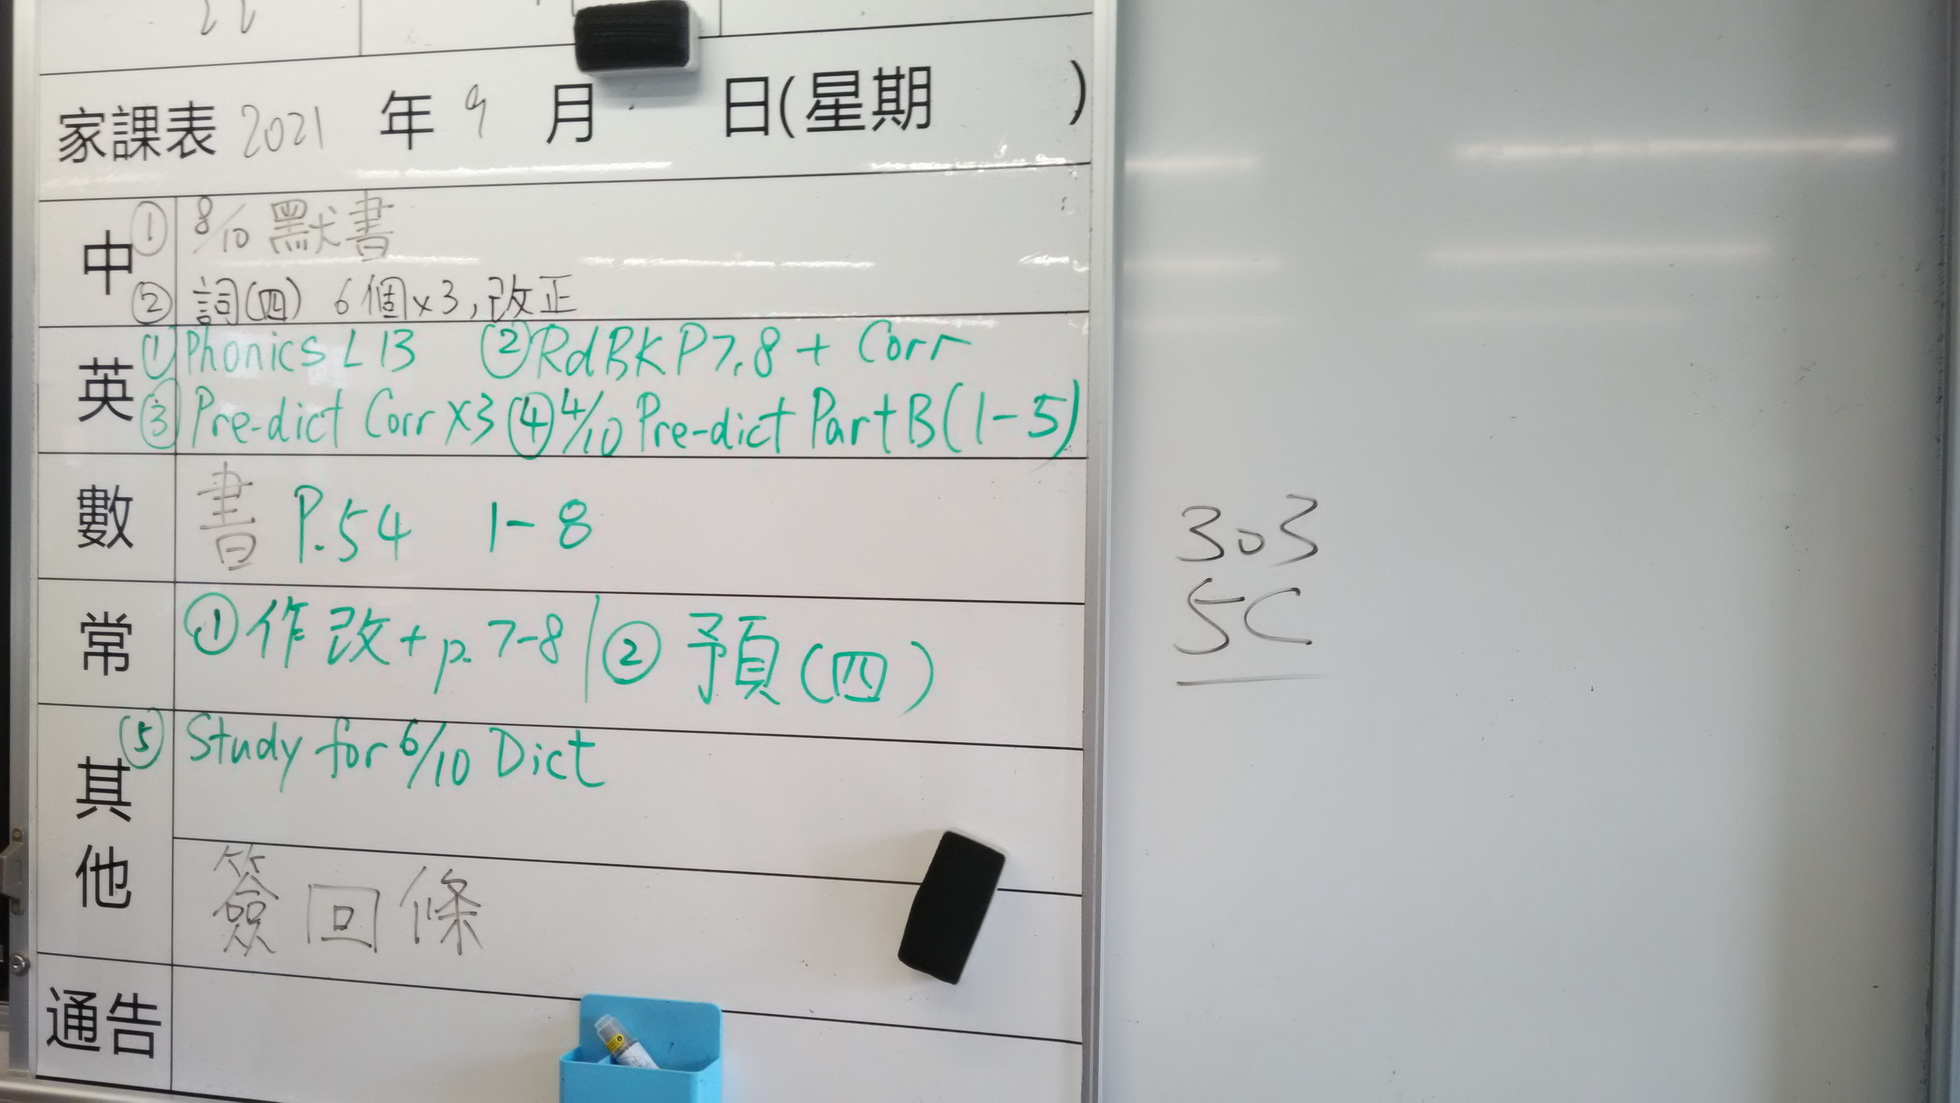 家課表 2021 年 9 月 日(星期 )
中 ① 8/10 默書
② 詞(四) 6個x3,改正
英 ① Phonics L13 ② RdBK P7,8 + Corr
③ Pre-dict Corr X3 ④ 4/10 Pre-dict Part B(1-5)
數 書 P.54 1-8
常 ① 作改+p.7-8 / ② 預(四)
其他 ⑤ Study for 6/10 Dict
簽回條
通告
303
5C